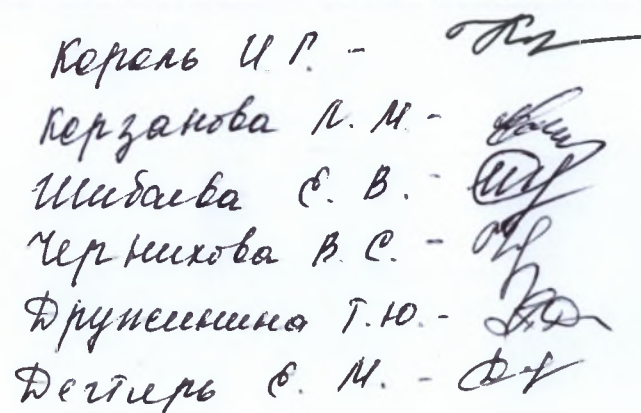 Король И Г. -
Корзанова Л. М. -
Шибаева Е. В. -
Черникова В. С. -
Дружинина Т. Ю. -
Дегтярь Е. М. -